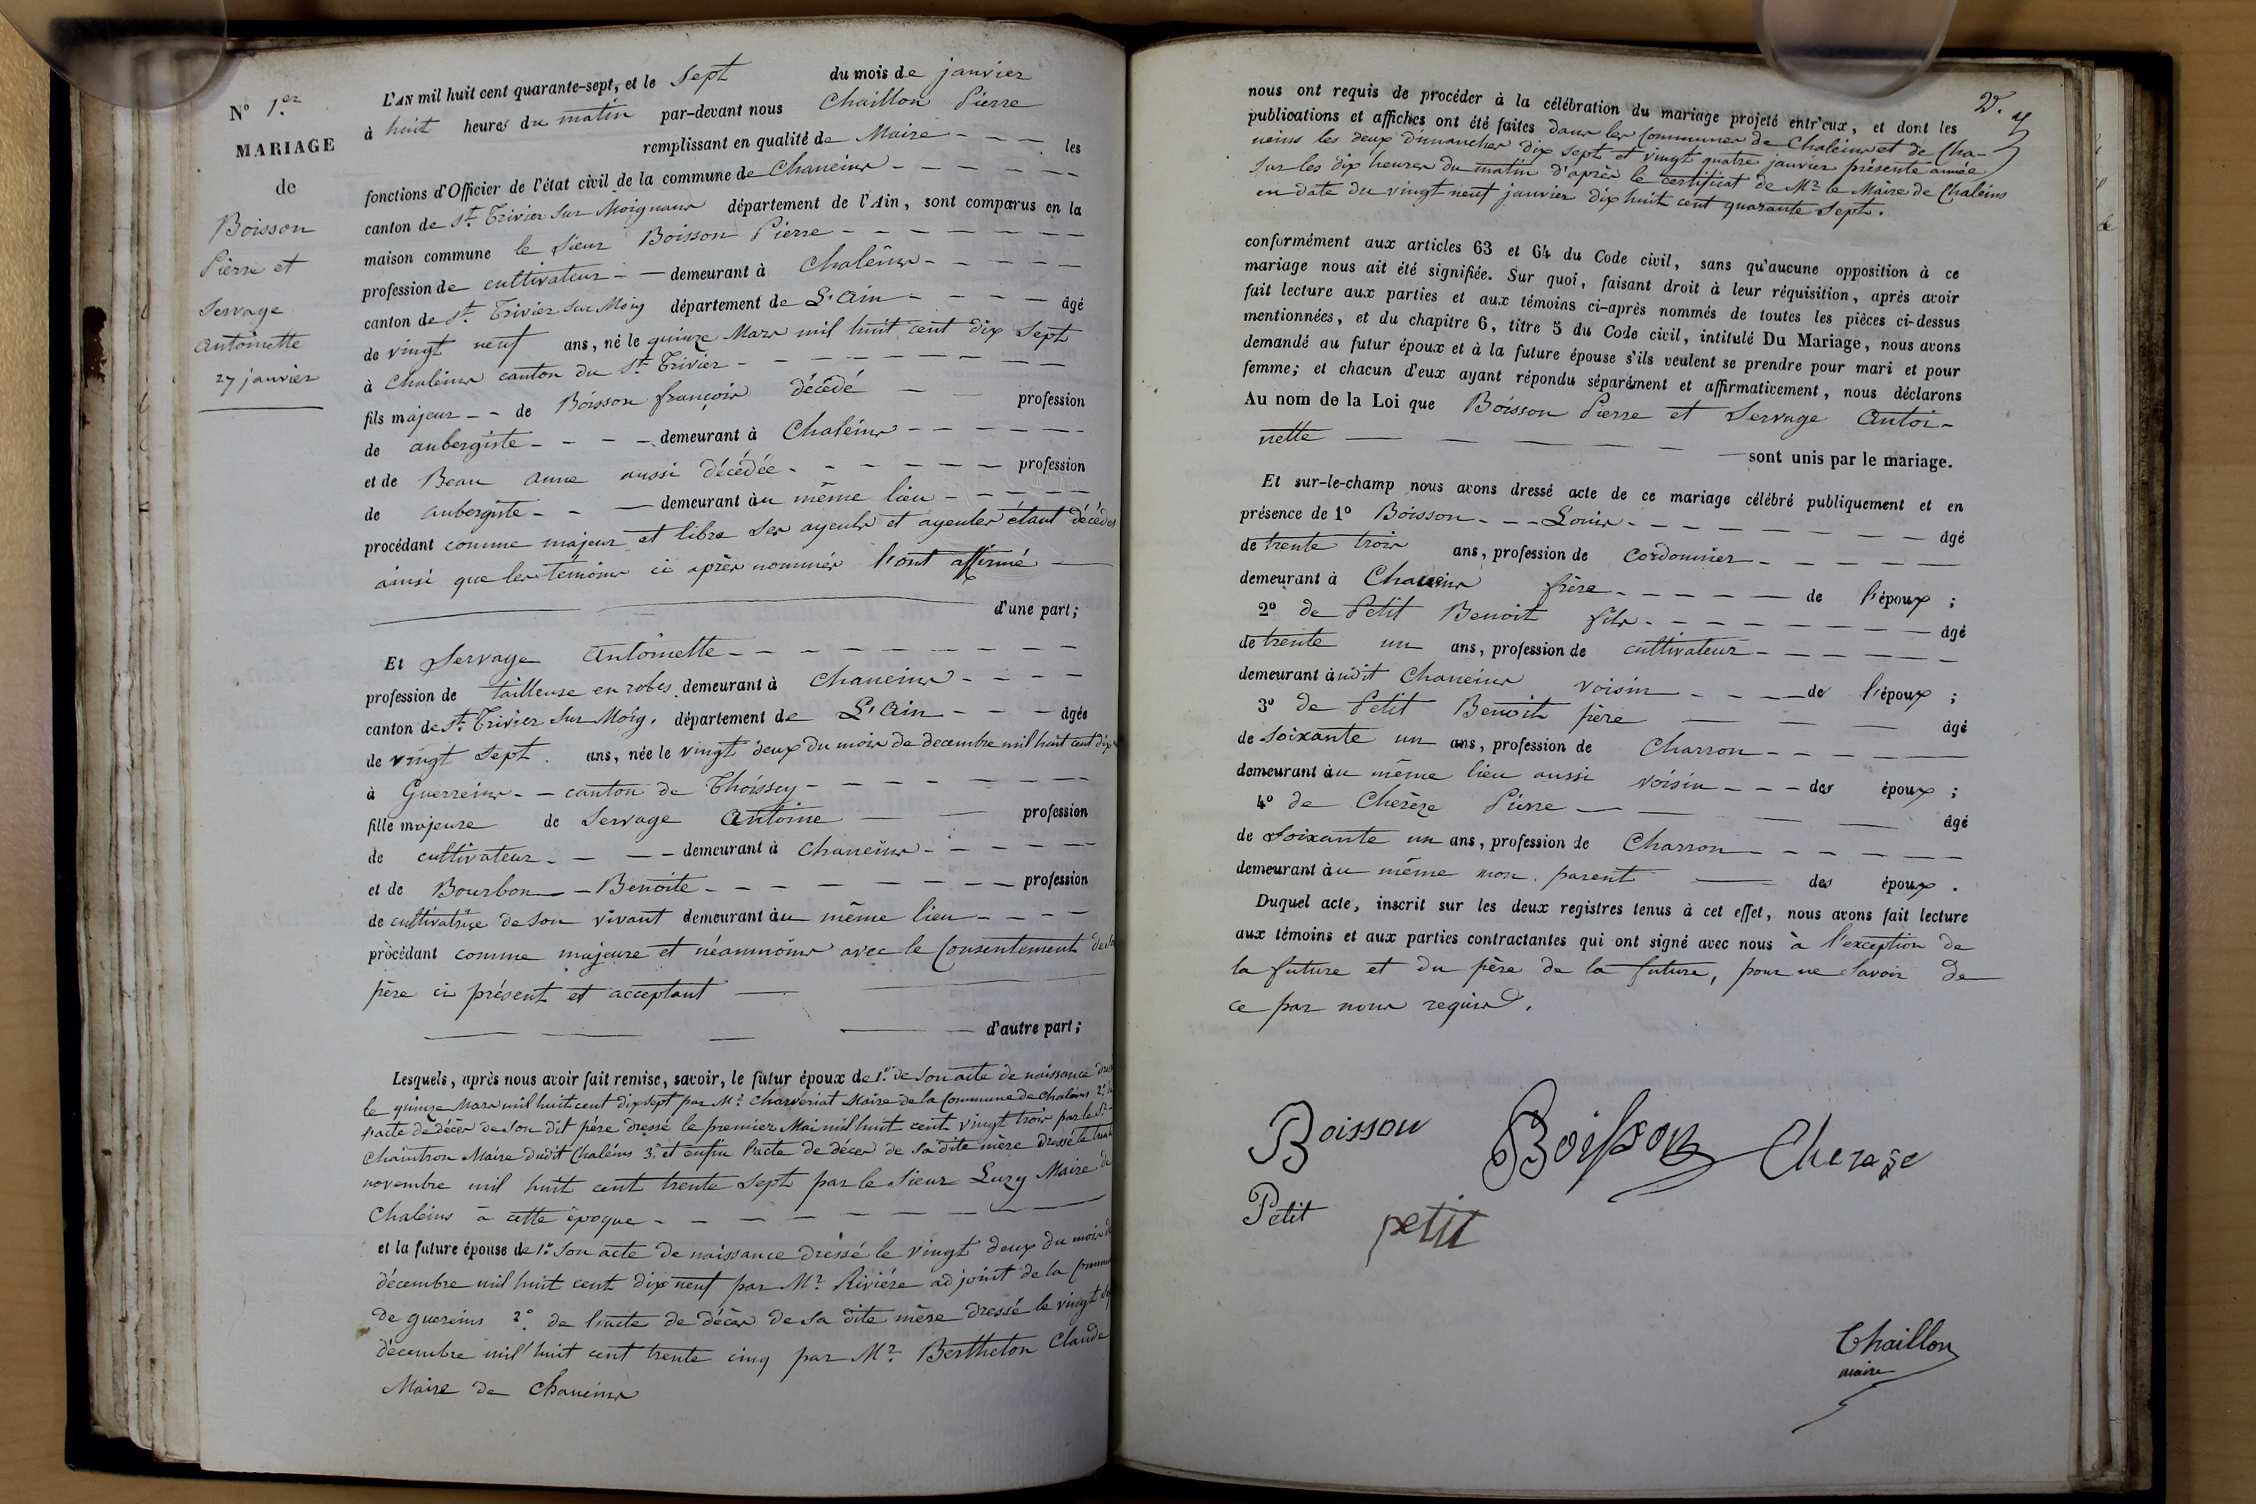 N° 1.er
MARIAGE
de
Boisson
Pierre et
Servage
antoinette
27 janvier
L'AN mil huit cent quarante-sept, et le sept du mois de janvier
à huit heures du matin par-devant nous Chaillon Pierre
remplissant en qualité de Maire - - - les
fonctions d'Officier de l'état civil de la commune de Chaneins - - - - -
canton de St. Trivier sur Moignans département de l'Ain, sont comparus en la
maison commune le sieur Boisson Pierre - - - - - - -
profession de cultivateur - - demeurant à Chaleins - - - - -
canton de St. Trivier sur Moig département de L'ain - - - - âgé
de vingt neuf ans, né le quinze Mars mil huit cent dix sept
à Chaleins canton du St. Trivier - - - - - - - -
fils majeur - - de Boisson françois décédé - - profession
de aubergiste - - - - demeurant à Chaleins - - - - - -
et de Beau anne aussi décédée - - - - - - profession
de aubergiste - - - demeurant àu même lieu - - - - -
procédant comme majeur et libre ses ayeuls et ayeules étant décédés
ainsi que les témoins ci après nommés l'ont affirmé -
d'une part;
Et Servage antoinette - - - - - - - - -
profession de tailleuse en robes demeurant à Chaneins - - - -
canton de St. Trivier sur Moig. département de L'ain - - - âgée
de vingt sept . ans, née le vingt deux du mois de decembre mil huit cent dix
à Guerreins - - canton de Thoissey - - - - - - - -
fille majeure de Servage antoine - - profession
de cultivateur - - - - demeurant à Chaneins - - - - - -
et de Bourbon - Benoite - - - - - - - - profession
de cultivatrice de son vivant demeurant àu même lieu - - - -
procédant comme majeure et néanmoins avec le Consentement de son
père ci présent et acceptant -
d'autre part;
Lesquels, après nous avoir fait remise, savoir, le futur époux de 1.° de son acte de naissance dressé
le quinze Mars mil huit cent dix sept par Mr. Charveriat Maire de la Commune de Chaleins 2.° de
l'acte de décès de son dit père dressé le premier Mai mil huit cent vingt trois par le Sr.
Chaintron Maire dudit Chaleins 3.° et enfin l'acte de décès de sa dite mère dressé le trente
novembre mil huit cent trente sept par le sieur Luzy Maire de
Chaleins à cette époque - - - - - - - - -
et la future épouse de 1.° Son acte de naissance dressé le vingt deux du mois de
décembre mil huit cent dix neuf par Mr. Rivière adjoint de la Commune
de guereins 2.° de l'acte de décès de sa dite mère dressé le vingt
décembre mil huit cent trente cinq par Mr. Bertheton Claude
Maire de Chaneins
2.
nous ont requis de procéder à la célébration du mariage projeté entr'eux, et dont les
publications et affiches ont été faites dans les Communes de Chaleins et de Cha-
neins les deux dimanches dix sept et vingt quatre janvier présente année
sur les dix heures du matin d'après le certificat de Mr. le Maire de Chaleins
en date du vingt neuf janvier dix huit cent quarante sept.
conformément aux articles 63 et 64 du Code civil, sans qu'aucune opposition à ce
mariage nous ait été signifiée. Sur quoi, faisant droit à leur réquisition, après avoir
fait lecture aux parties et aux témoins ci-après nommés de toutes les pièces ci-dessus
mentionnées, et du chapitre 6, titre 5 du Code civil, intitulé Du Mariage, nous avons
demandé au futur époux et à la future épouse s'ils veulent se prendre pour mari et pour
femme; et chacun d'eux ayant répondu séparément et affirmativement, nous déclarons
Au nom de la Loi que Boisson Pierre et Servage antoi-
nette - - - - - - sont unis par le mariage.
Et sur-le-champ nous avons dressé acte de ce mariage célébré publiquement et en
présence de 1° Boisson - - - Louis - - - - - - - âgé
de trente trois ans, profession de cordonnier - - - - -
demeurant à Chaneins frère - - - - - de l'époux ;
2° de Petit Benoit fils - - - - - - - - âgé
de trente un ans, profession de cultivateur - - - - - -
demeurant àudit Chaneins voisin - - - - de l'époux ;
3° de Petit Benoit père - - - âgé
de soixante un ans, profession de Charron - - - - -
demeurant àu même lieu aussi voisin - - - des époux ;
4° de Cherèze Pierre - - - - âgé
de soixante un ans, profession de Charron - - - - - -
demeurant àu même non parent - des époux .
Duquel acte, inscrit sur les deux registres tenus à cet effet, nous avons fait lecture
aux témoins et aux parties contractantes qui ont signé avec nous à l'exception de
la future et du père de la future, pour ne savoir de
ce par nous requis.
Boisson Boisson Chereze
Petit petit
Chaillon
maire